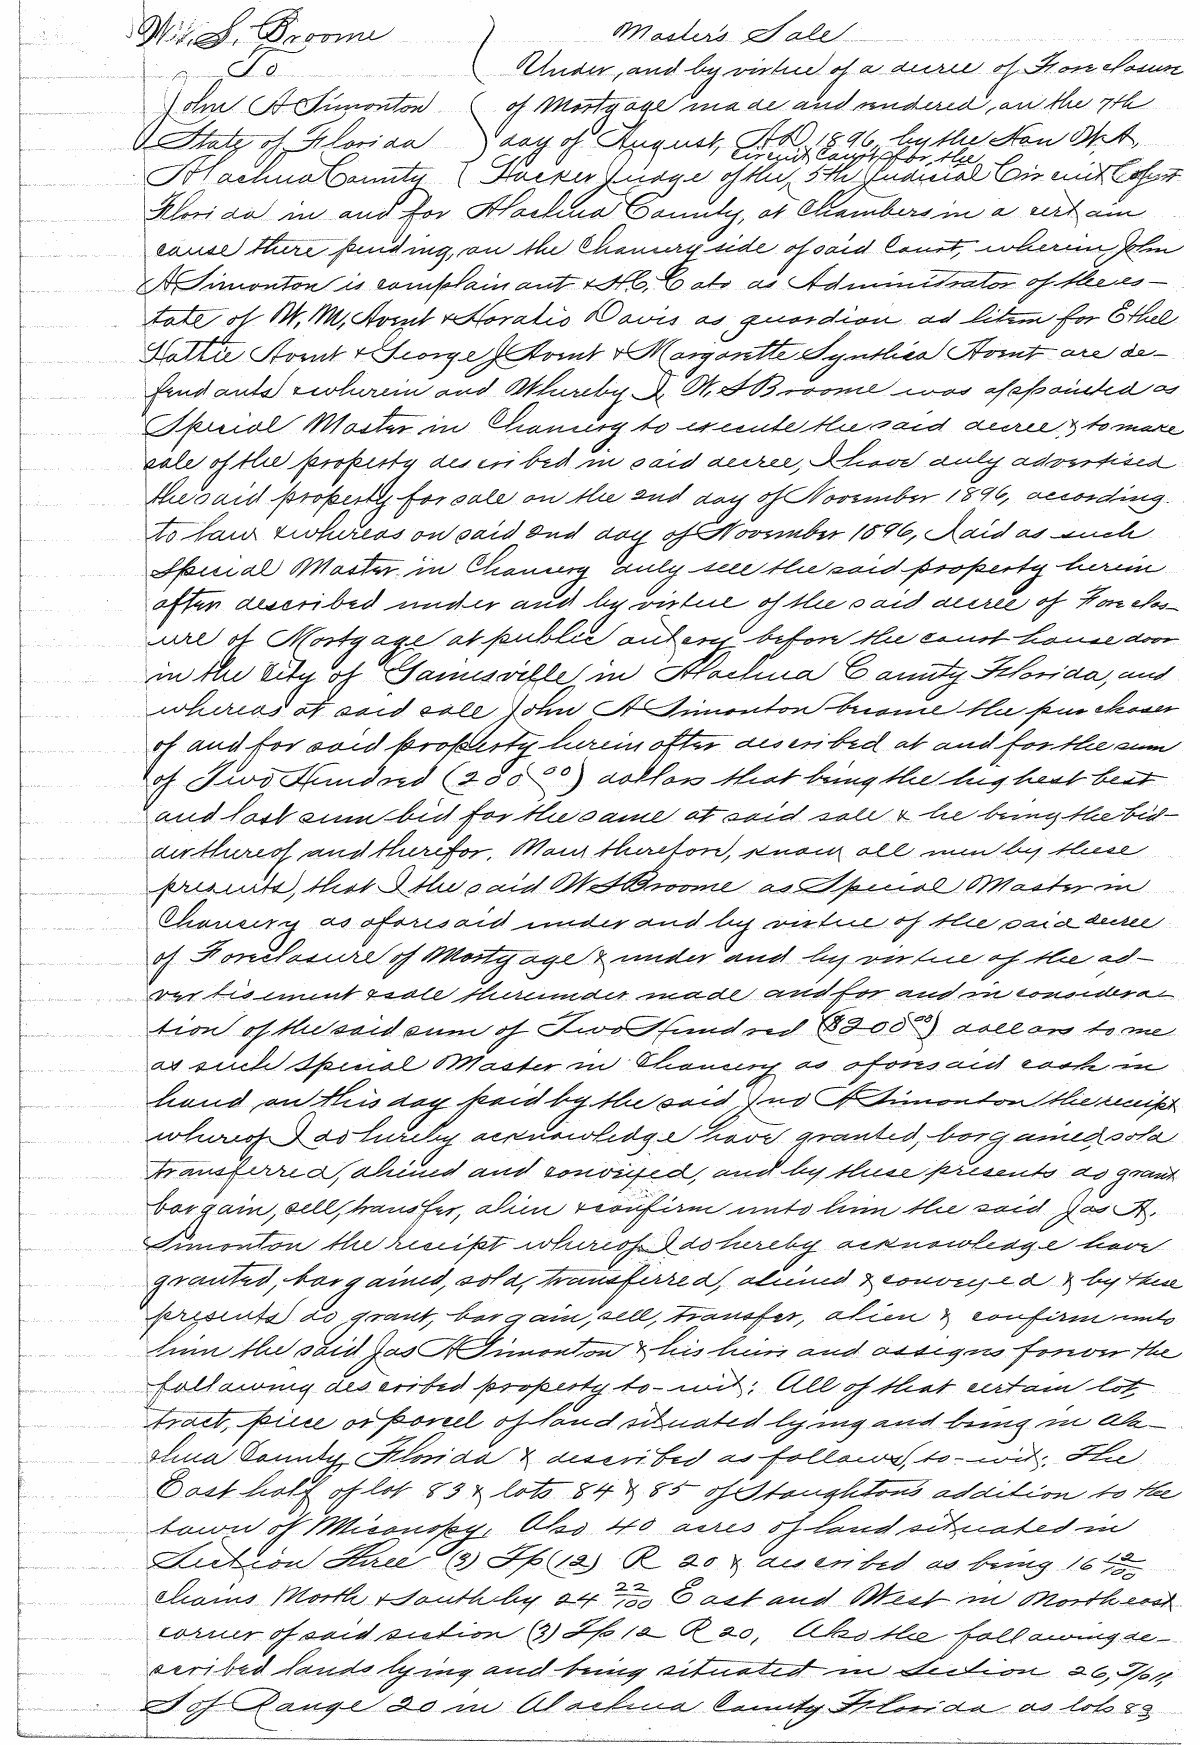 Wm. S. Broome Master's Sale
To Under, and by virtue of a decree of Foreclosure
John A Simonton of Mortgage made and rendered, on the 7th
State of Florida day of August, AD, 1896, by the Hon W.A.
Circuit Court for the
Alachua County Hocker Judge of the 5th Judicial Circuit Court
Florida in and for Alachua County, at Chambers in a certain
cause there pending, on the Chancery side of said Court, wherein John
A Simonton is complainant & H.C. Cato as Administrator of the es-
tate of W. M. Avent & Horatio Davis as guardian ad litem for Ethel
Hattie Avent & George J Avent & Margarette Synthia Avent are de-
fendants & wherein and Whereby I, W. S Broome was appointed as
Special Master in Chancery to execute the said decree & to make
sale of the property described in said decree, I have duly advertised
the said property for sale on the 2nd day of November 1896, acording
to law & whereas on said 2nd day of November 1896, I did as such
Special Master in Chancery duly sell the said property herein
after described under and by virtue of the said decree of Foreclos-
ure of Mortgage at public outcry before the court house door
in the City of Gainesville in Alachua County Florida, and
whereas at said sale John A Simonton became the purchaser
of and for said property herein after described at and for the sum
of Two Hundred (200 00) dollars that being the highest best
and last sum bid for the same at said sale & he being the bid-
der thereof and therefor. Now therefore, know all men by these
presents, that I the said W S Broome as Special Master in
Chancery as aforesaid under and by virtue of the said decree
of Foreclosure of Mortgage & under and by virtue of the ad-
vertisement & sale thereunder made and for and in considera-
tion of the said sum of Two Hundred ($200 00) dollars to me
as such Special Master in Chancery as aforesaid cash in
hand on this day paid by the said Jno A Simonton the receipt
whereof I do hereby acknowledge have granted, bargained, sold
transferred, aliened and conveyed, and by these presents do grant
bargain, sell, transfer, alien & confirm unto him the said Jas A.
Simonton the receipt whereof I do hereby acknowledge have
granted, bargained, sold, transferred, aliened & conveyed & by these
presents do grant, bargain, sell, transfer, alien & confirm unto
him the said Jas A Simonton & his heirs and assigns forever the
following described property to-wit: All of that certain lot,
tract, piece or parcel of land situated lying and being in Ala-
chua County Florida & described as follows, to-wit: The
East half of lot 83 & lots 84 & 85 of Stoughtons addition to the
town of Micanopy, Also 40 acres of land situated in
Section Three (3) Tp (12) R 20 & described as being 16 12/100
chains North & South by 24 22/100 East and West in North east
corner of said section (3) Tp 12 R 20, Also the following de-
scribed lands lying and being situated in Section 26, Tp 11,
S of Range 20 in Alachua County Florida as lots 83